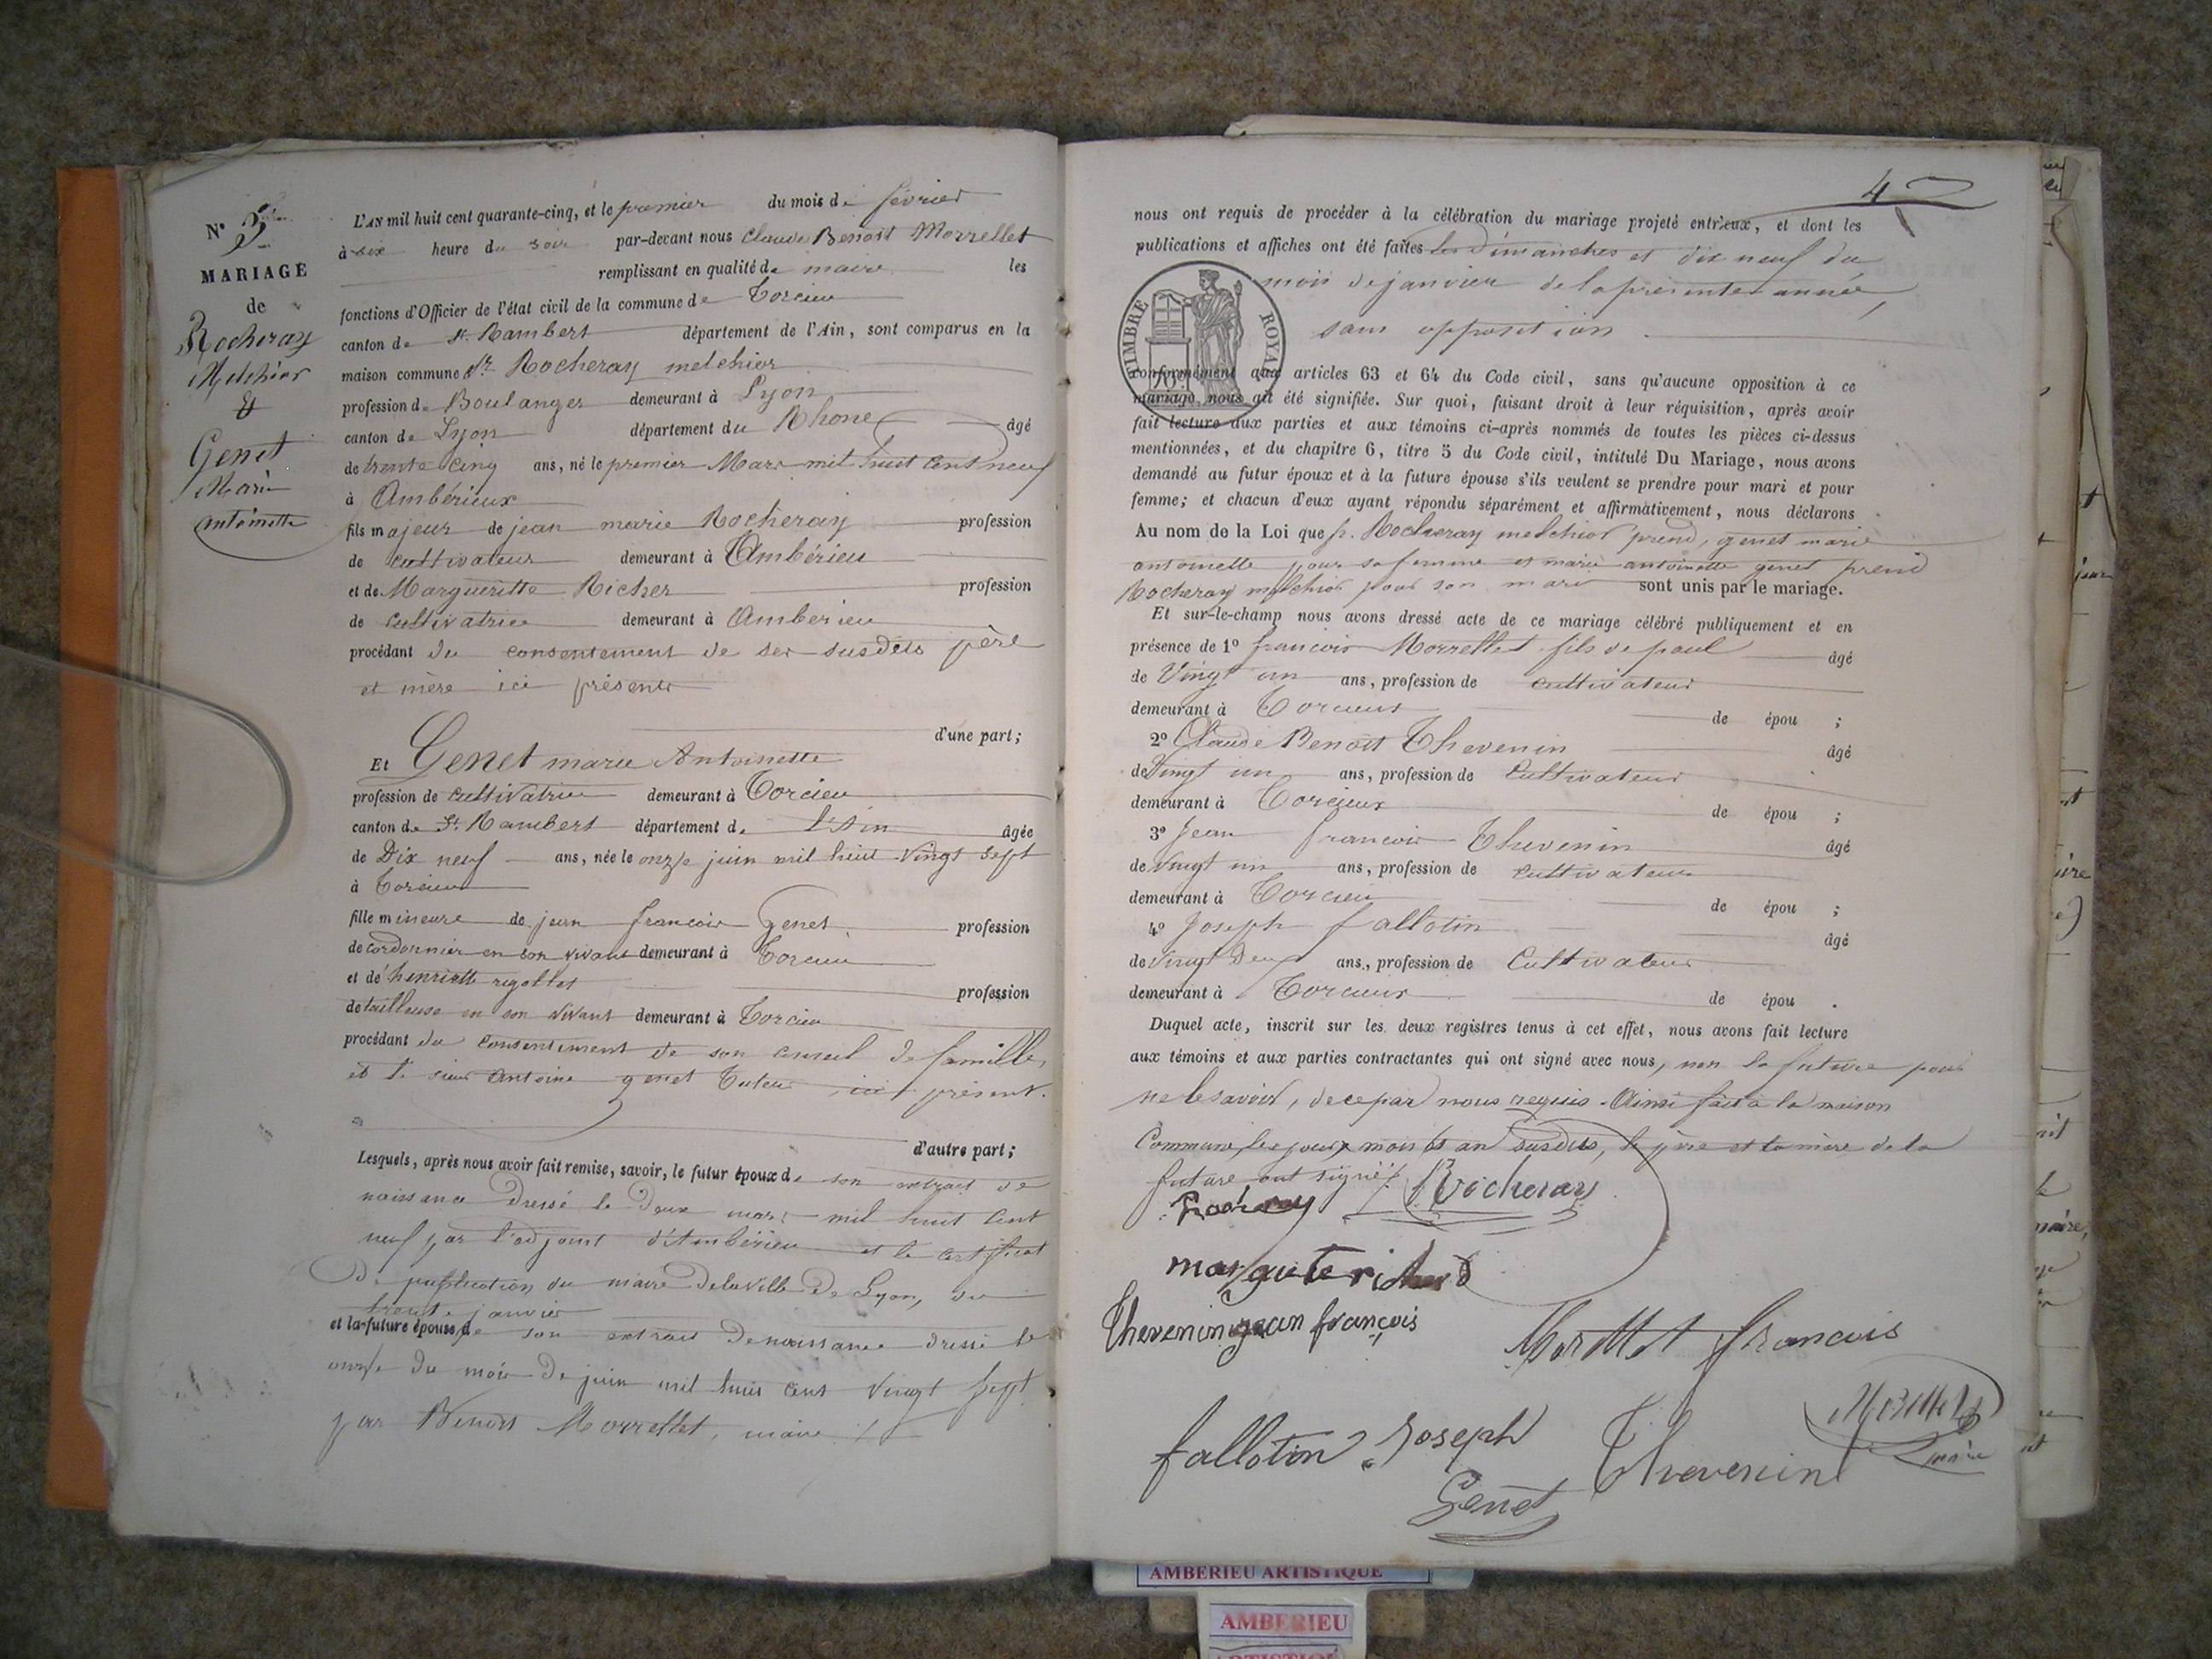 N° 3
MARIAGE
de
Rocheray
Melchior
&
Genet
Marie
antoinette
L'AN mil huit cent quarante-cinq, et le premier du mois de février
à six heure du soir par-devant nous Claude Benoit Morrellet
remplissant en qualité de maire les
fonctions d'Officier de l'état civil de la commune de Torcieu
canton de St Rambert département de l'Ain, sont comparus en la
maison commune Sr Rocheray melchior
profession de Boulanger demeurant à Lyon
canton de Lyon département du Rhone âgé
de trente cinq ans, né le premier Mars mil huit cent neuf
à Ambérieux
fils majeur de jean marie Rocheray profession
de cultivateur demeurant à Ambérieu
et de Margueritte Richer profession
de Cultivatrice demeurant à Amberieu
procédant du consentement de ses susdits père
et mère ici présents
d'une part;
Et Genet marie Antoinette
profession de cultivatrice demeurant à Torcieu
canton de St Rambert département de l'Ain âgée
de Dix neuf ans, née le onze juin mil huit vingt sept
à Torcieu
fille mineure de jean francois Genet profession
de cordonnier en son vivant demeurant à Torcieu
et de henriette rigollet profession
de tailleuse en son vivant demeurant à Torcieu
procédant du consentement de son conseil de famille,
et le sieur Antoine genet Tuteur, ici présent.
d'autre part;
Lesquels, après nous avoir fait remise, savoir, le futur époux de son extrait de
naissance dressé le Deux mars mil huit cent
neuf par l'adjoint d'Ambérieu et le certificat
De publication du maire de la ville de Lyon, du
trente janvier
et la future épouse de son extrait De naissance dressé le
onze du mois De juin mil huit cent vingt sept
par Benoit Morrellet, maire
4
nous ont requis de procéder à la célébration du mariage projeté entr'eux, et dont les
publications et affiches ont été faites les Dimanches et dix neuf du
mois de janvier de la présente année,
sans opposition
TIMBRE ROYAL
conformément aux articles 63 et 64 du Code civil, sans qu'aucune opposition à ce
mariage nous ait été signifiée. Sur quoi, faisant droit à leur réquisition, après avoir
fait lecture aux parties et aux témoins ci-après nommés de toutes les pièces ci-dessus
mentionnées, et du chapitre 6, titre 5 du Code civil, intitulé Du Mariage, nous avons
demandé au futur époux et à la future épouse s'ils veulent se prendre pour mari et pour
femme; et chacun d'eux ayant répondu séparément et affirmativement, nous déclarons
Au nom de la Loi que Sr. Rocheray melchior prend, genet marie
antoinette pour sa femme et marie antoinette genet prend
Rocheray melchior pour son mari sont unis par le mariage.
Et sur-le-champ nous avons dressé acte de ce mariage célébré publiquement et en
présence de 1° francois Morrellet fils de paul âgé
de Vingt un ans, profession de cultivateur
demeurant à Torcieux de épou ;
2° Claude Benoit Thevenin âgé
de Vingt un ans, profession de Cultivateur
demeurant à Torcieux de épou ;
3° Jean francois Thevenin âgé
de Vingt un ans, profession de cultivateur
demeurant à Torcieu de épou ;
4° Joseph fallotin âgé
de Vingt Deux ans, profession de Cultivateur
demeurant à Torcieux de épou .
Duquel acte, inscrit sur les deux registres tenus à cet effet, nous avons fait lecture
aux témoins et aux parties contractantes qui ont signé avec nous, non la future pour
ne le savoir, de ce par nous requis. Ainsi fait à la maison
Commune les jour, mois et an susdits, le père et la mère de la
future ont signés
Rocheray Rocheray
marguerite richerd
Thevenin jean françois
Morellet francois
Morellet
maire
fallotin Joseph
Thevenin
Genet
AMBERIEU ARTISTIQUE
AMBERIEU
ARTISTIQUE